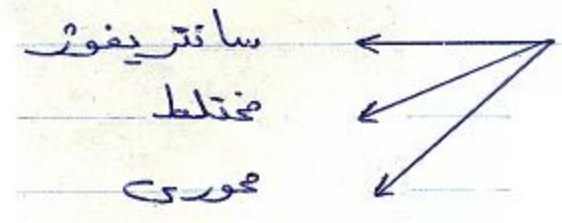 سانتریفوژ
مختلط
محوری